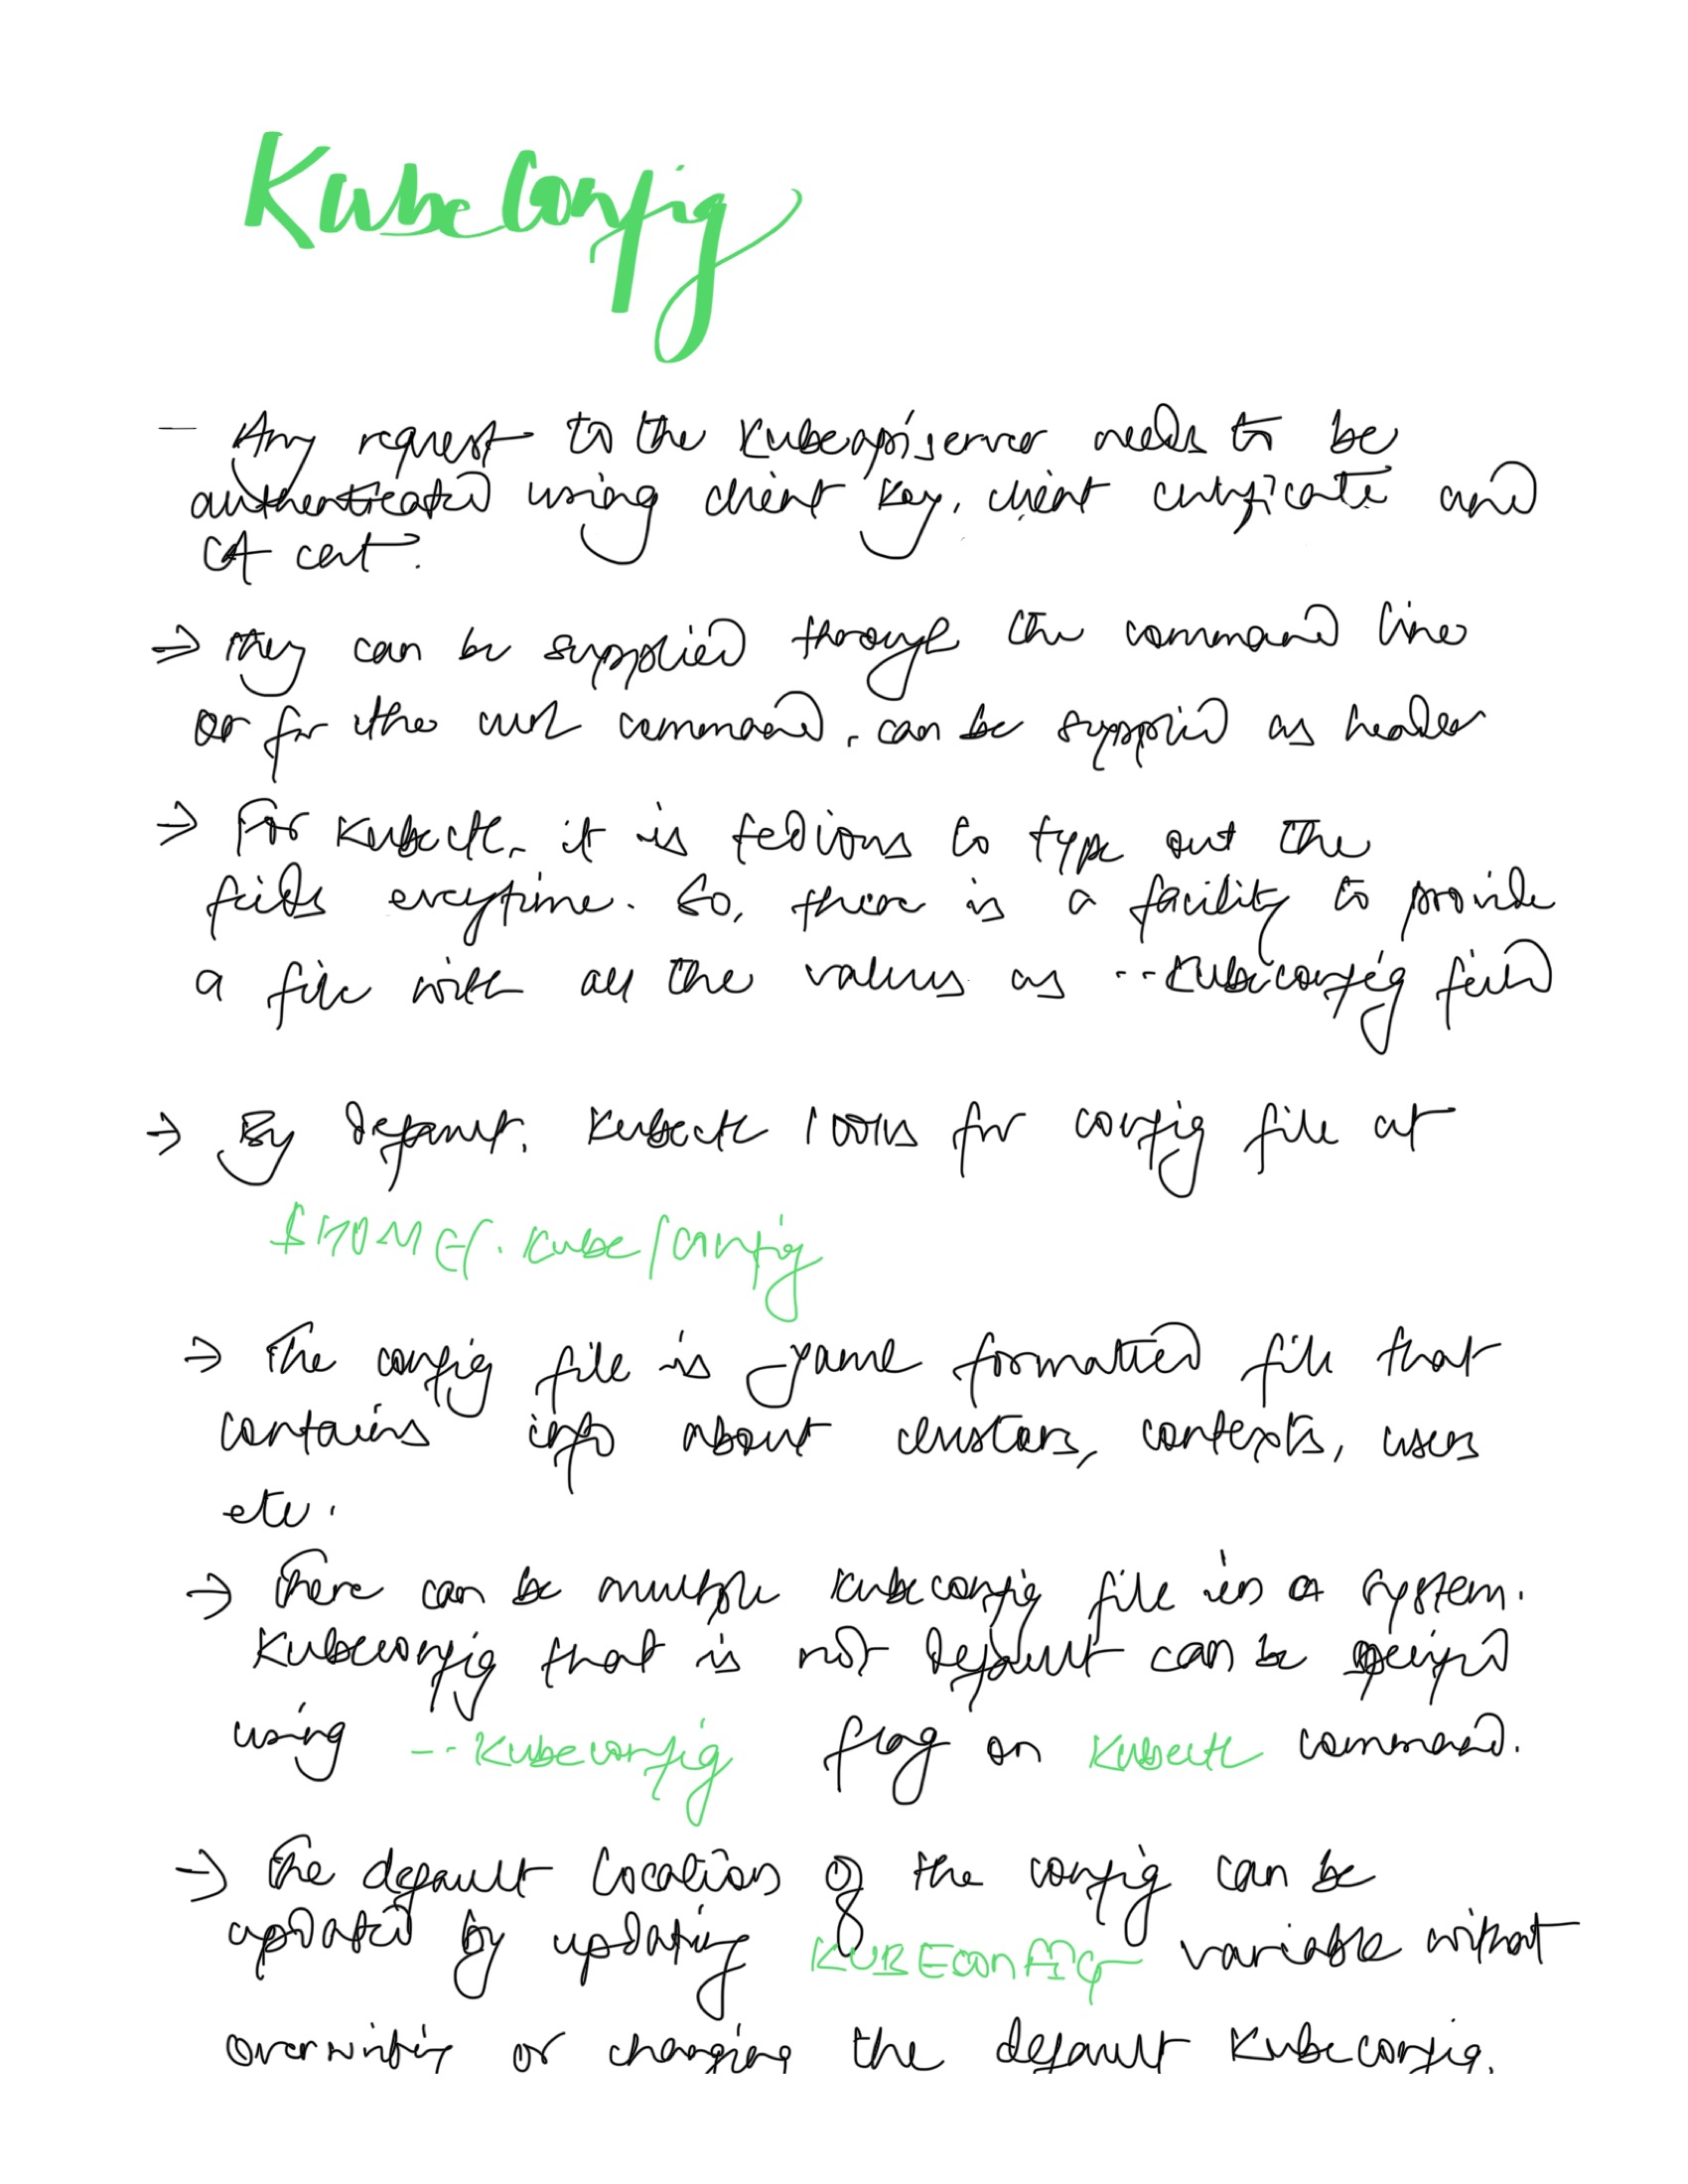 KubeConfig
- Any request to the Kubeapiserver needs to be
authenticated using client key, client certificate and
CA cert.
→ They can be supplied through the command line
or for the curl command, can be supplied as header
→ For Kubectl, it is tedious to type out the
fields everytime. So, there is a facility to provide
a file with all the values as --Kubeconfig field
→ By default, Kubectl looks for config file at
$HOME/.kube/config
→ The config file is yaml formatted file that
contains info about clusters, contexts, users
etc.
→ There can be multiple kubeconfig file in a system.
Kubeconfig that is not default can be specified
using --Kubeconfig flag on Kubectl command.
→ The default location of the config can be
updated by updating KUBEConfIG variable without
overwriting or changing the default Kubeconfig.